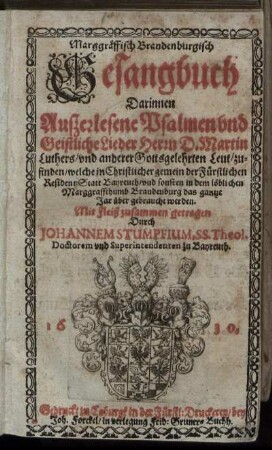 Marggräffisch Brandenburgisch
Gesangbuch
Darinnen
Außerlesene Psalmen vnd
Geistliche Lieder Herrn D. Martin
Luthers/vnd anderer Gottsgelehrten Leut/zu-
finden/welche in Christlicher gemein der Fürstlichen
Residentz Statt Bayreuth/vnd sonsten in dem löblichen
Marggraffthumb Brandenburg das gantze
Jar über gebraucht werden.
Mit fleiß zusammen getragen
Durch
JOHANNEM STUMPFIUM, SS. Theol.
Doctorem vnd Superintendenten zu Bayreuth.
1630.
Gedruckt zu Coburgk in der Fürstl: Druckerey/bey
Joh. Forckel/in verlegung Frid: Gruners Buchh.